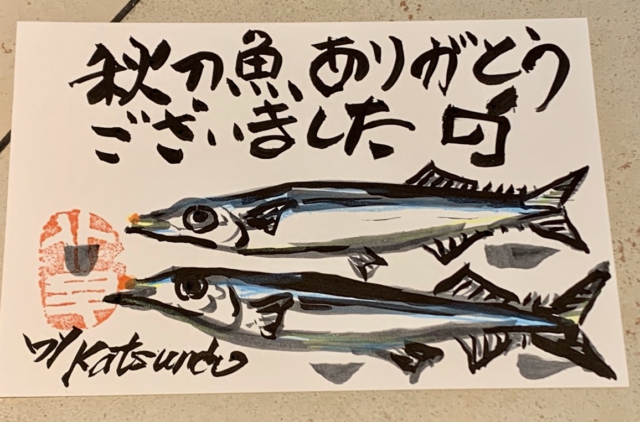 秋刀魚、ありがとう
ございました
by Katsundo